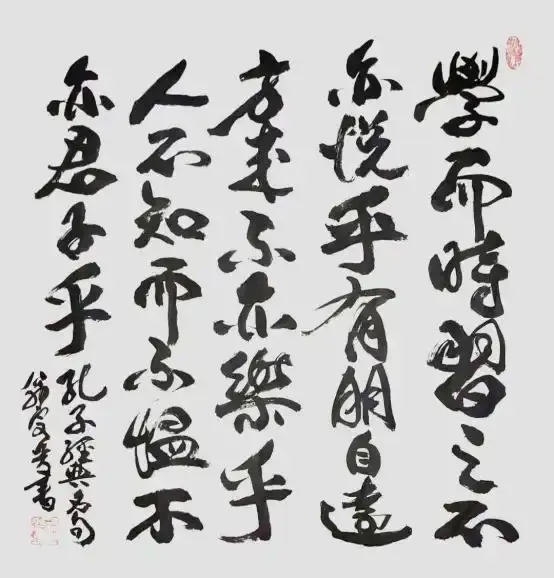 學而時習之不
亦悦乎有朋自遠
方來不亦樂乎
人不知而不愠不
亦君子乎
孔子經典名句
書